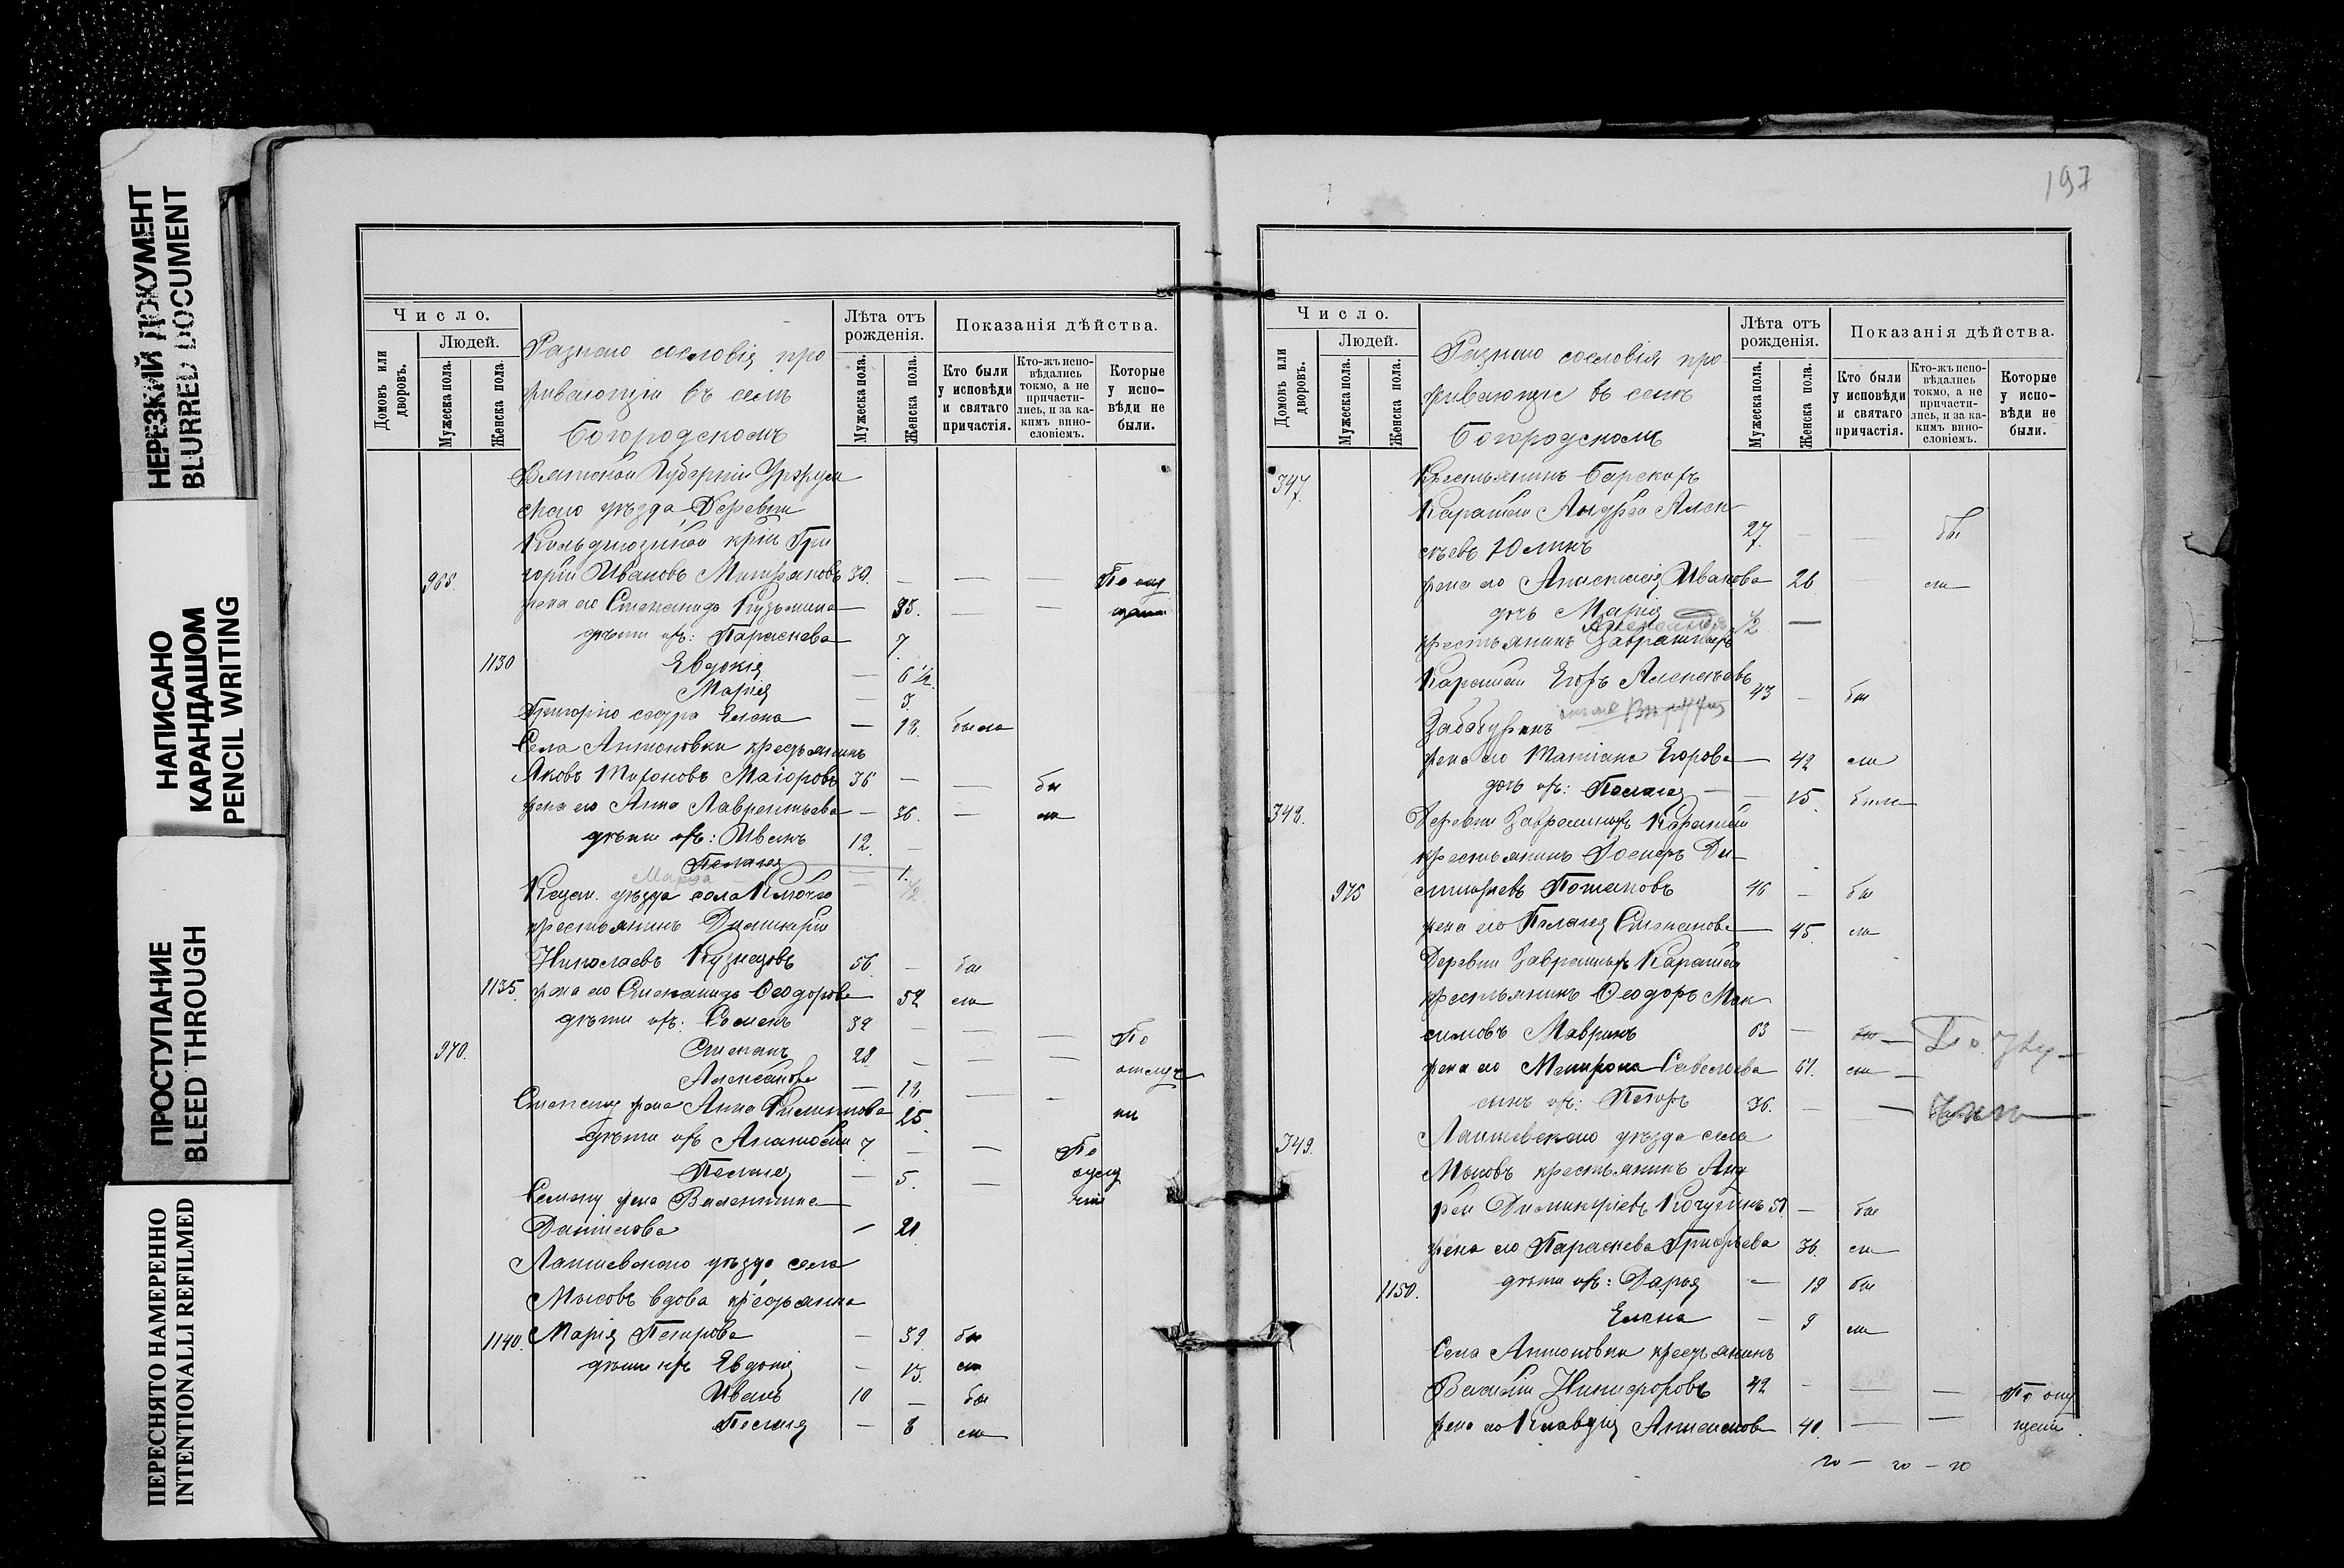 НЕРЕЗКИЙ ДОКУМЕНТ
BLURRED DOCUMENT
НАПИСАНО
КАРАНДАШОМ
PENCIL WRITING
ПРОСТУПАНИЕ
BLEED THROUGH
ПЕРЕСНЯТО НАМЕРЕННО
INTENTIONALLI REFILMED
Число.
Домовъ или дворовъ.
Людей.
Мужеска пола.
Женска пола
Разнаго сословія про
живающіи въ селѣ
Богородскомъ
Лѣта отъ рожденія.
Мужеска пола.
Женска пола.
Показанія дѣйства.
Кто были у исповѣди и святаго причастія.
Кто-жъ испо-вѣдались токмо, а не причасти-лись, и за ка-кимъ вино-словіемъ.
Которые у испо-вѣди не были.
Вятской Губерніи Уржум
скаго уѣзда Деревни
Григ
966. горій Ивановъ 30. — — — По опу
жена его Степанида Кузьмина 35. — — щенію
дѣти ихъ: Параскева 7
1130 Евдокія — 6 1/2
Марія — 3.
Григорію сестра Елена — 18. была
Села Антоновки крестьянинъ
Яковъ Тихоновъ Маіоровъ 36 — — бы
жена его Анна Лаврентьева — 36. — ла
дѣти ихъ: Иванъ 12. —
Пелагея — 1.
Марія 1/2
уѣзда села Ключе
крестьянинъ Димитрій
Николаевъ Кузнецовъ 56 — бы
1135. жена его Степанида Ѳеодорова 52 ла
дѣти ихъ: Семенъ 32 — — — По
970. Степанъ 28 — — — отлуч
Александра — 18. — —
Степану жена Анна 25. ки
дѣти ихъ Анатолій 7 — — По
Пелагея — 5. — отлу
Семену жена Валентина чкѣ
Данилова — 21
Лаишевскаго уѣзда села
Мысовъ вдова крестьянка
1140. Марія Петрова — 39. бы
дѣти ихъ Евдокія — 15. ла
Иванъ 10 — бы
Пелагея — 8 ла
197
Число.
Домовъ или дворовъ.
Людей.
Мужеска пола.
Женска пола.
Разнаго сословія про
живающіе въ селѣ
Богородскомъ
Лѣта отъ рожденія.
Мужеска пола.
Женска пола.
Показанія дѣйства.
Кто были у исповѣди и святаго причастія.
Кто-жъ испо-вѣдались токмо, а не причасти-лись, и за ка-кимъ вино-словіемъ.
Которые у испо-вѣди не были.
347. Крестьянинъ Барскихъ
Каратай Андрей Алек
сѣевъ Юлинъ 27. — — бы
жена его Анастасія Иванова 26 ла
дочь Марія 1/2 —
крестьянинъ
Каратай Егоръ Алексѣевъ 43 — бы
Забабуринъ
жена его Татіана Егорова — 42 ла
дочь ихъ: Пелагея — — 15. была
348. Деревни Каратай
крестьянинъ Ди
975 митріевъ Потаповъ 46 — бы
жена его Пелагея Степанова — 45. ла
Деревни Каратай
крестьянинъ Ѳеодоръ Мак
симовъ Мавринъ 63 — бы —
жена его Савельева 61. ла —
сынъ ихъ: Петръ 36. — —
349. Лаишевскаго уѣзда села
Мысовъ крестьянинъ Анд
рей Димитріевъ — бы
жена его Параскева Григорьева 36. ла
1150. дѣти ихъ: Дарья — 19 бы
Елена — 9 ла
Села Антоновки крестьянинъ
Василій Никифоровъ 42 — — — По опу
жена его Клавдія 40. — — щенію
20 — 20 — 20